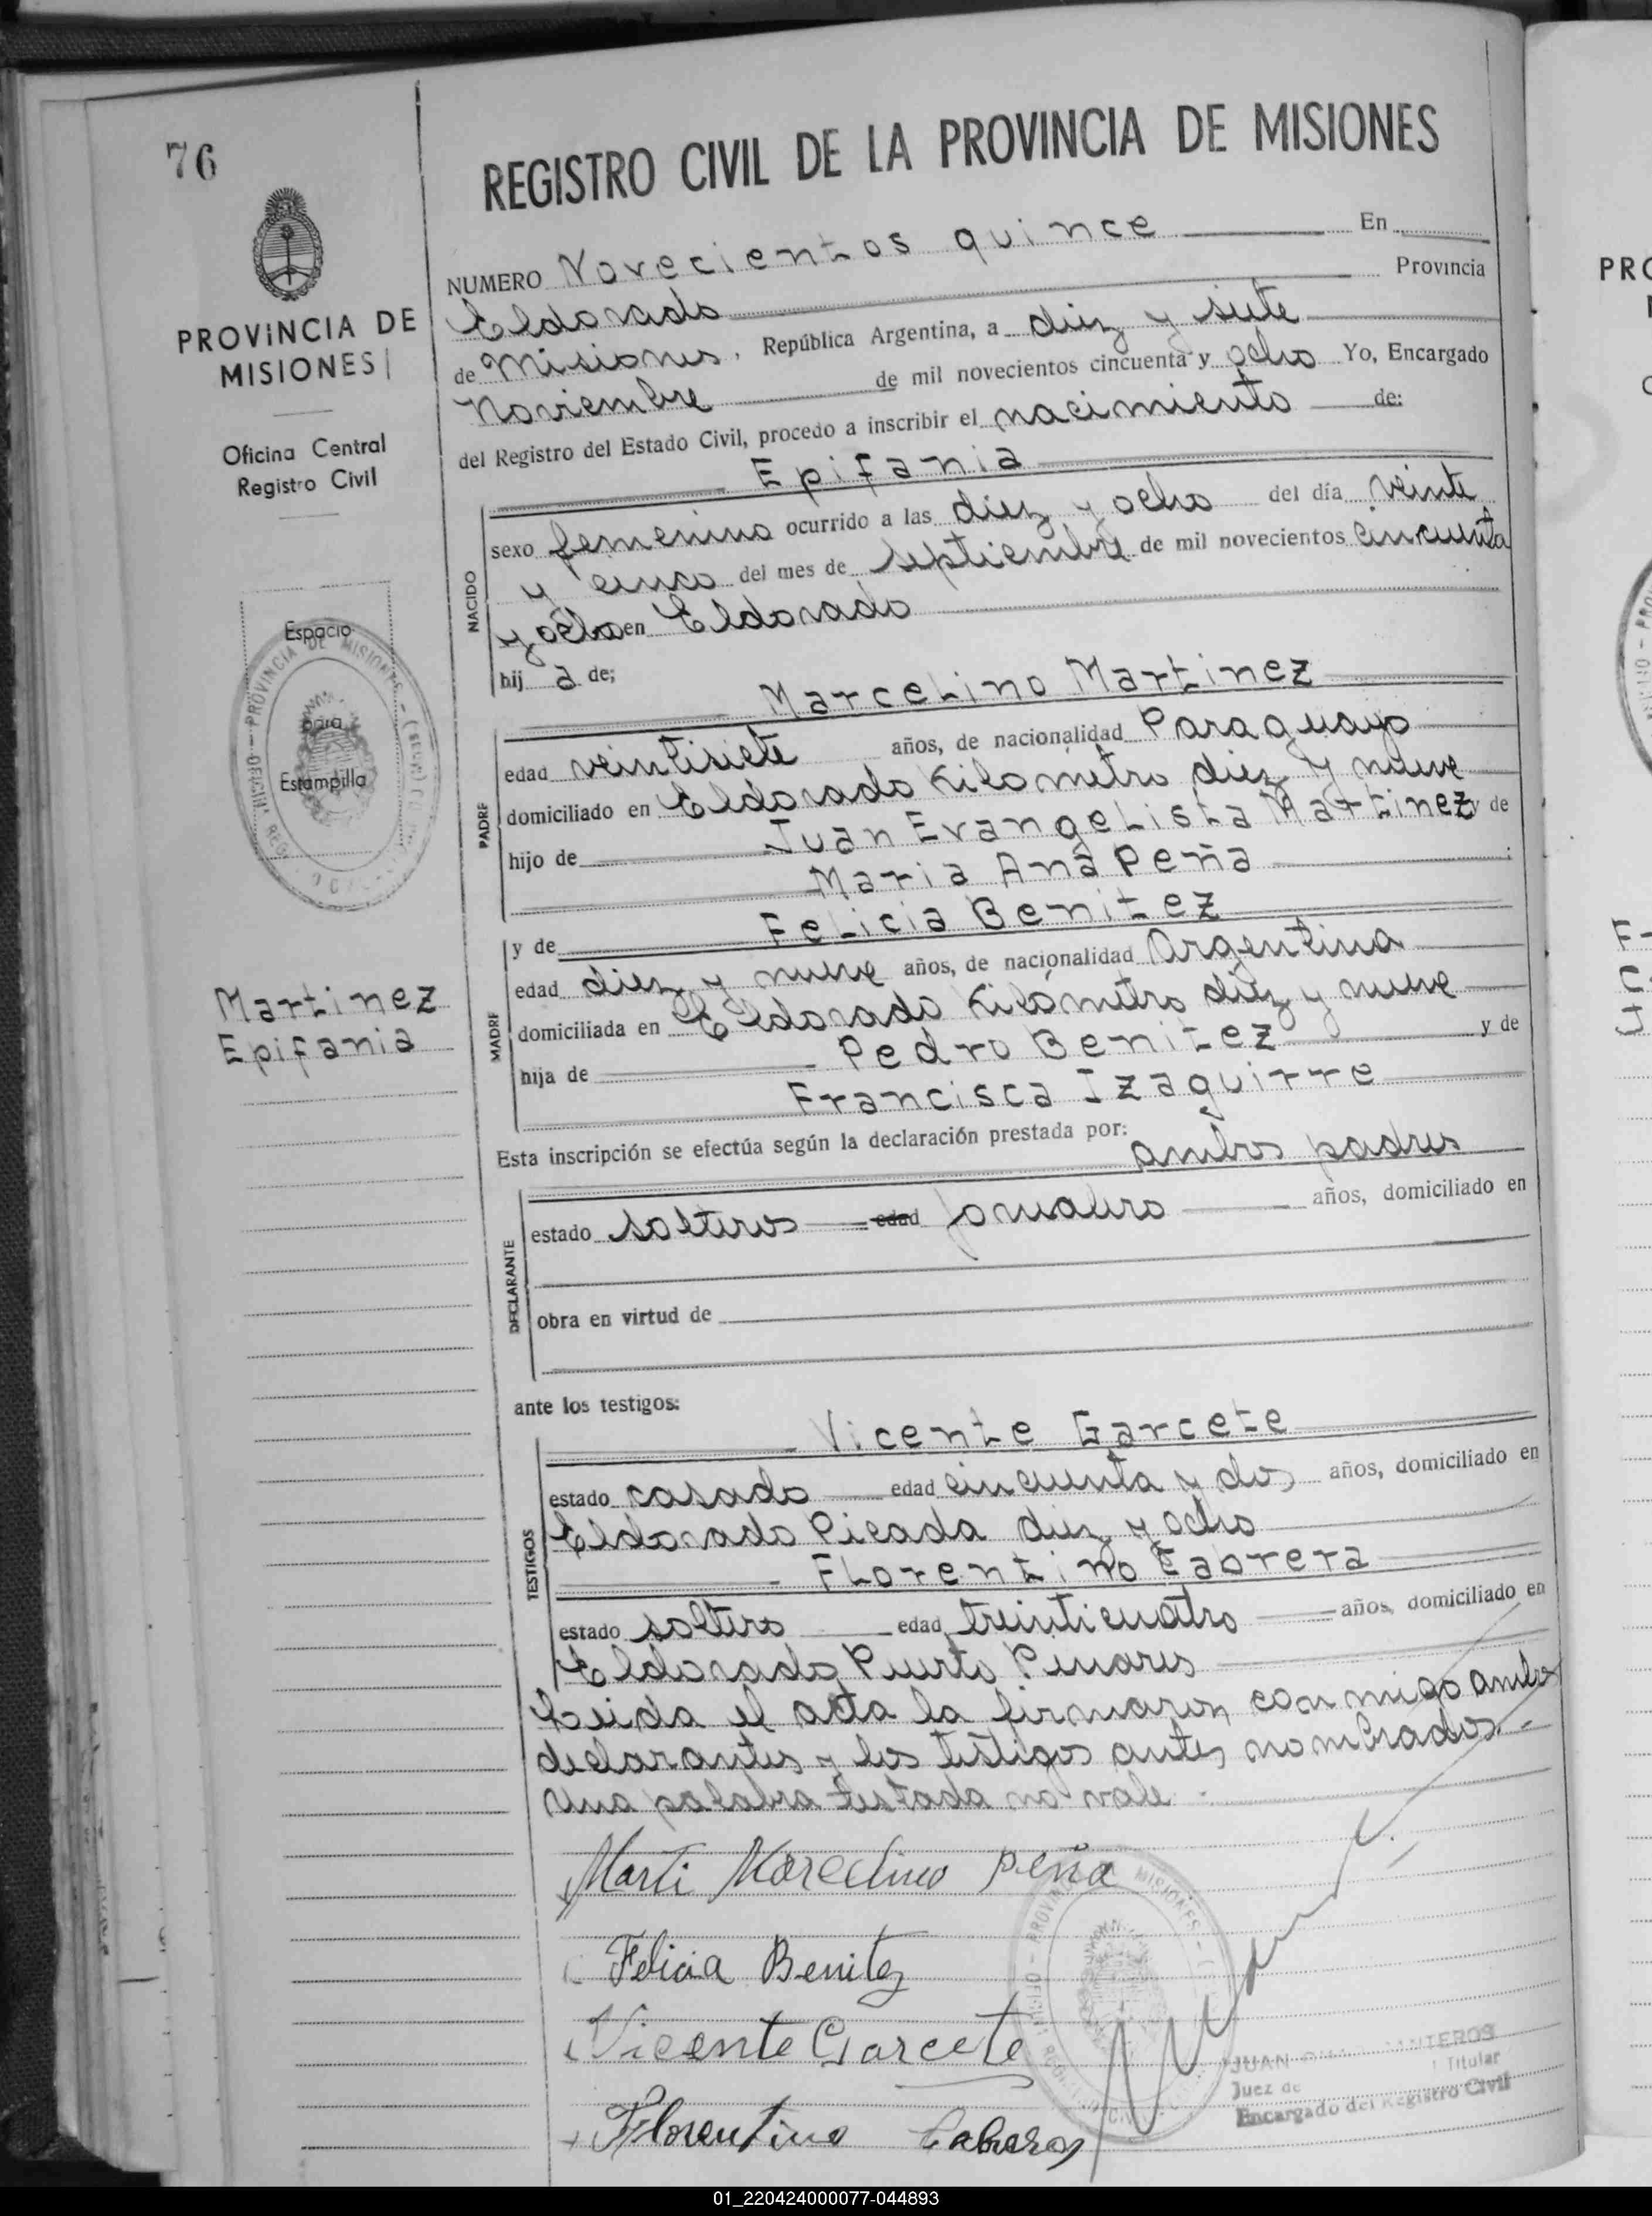 76
PROVINCIA DE
MISIONES
Oficina Central
Registro Civil
Espacio
para
Estampilla
Martinez
Epifania
REGISTRO CIVIL DE LA PROVINCIA DE MISIONES
NUMERO Novecientos quince En
Eldorado Provincia
de Misiones, República Argentina, a diez y siete
Noviembre de mil novecientos cincuenta y ocho Yo, Encargado
del Registro del Estado Civil, procedo a inscribir el nacimiento de:
Epifania
NACIDO
sexo femenino ocurrido a las diez y ocho del día veinte
y cinco del mes de septiembre de mil novecientos cincuenta
y ocho en Eldorado
hij a de;
Marcelino Martinez
PADRE
edad veintisiete años, de nacionalidad Paraguayo
domiciliado en Eldorado Kilometro diez y nueve
hijo de Juan Evangelista Martinez y de
Maria Ana Peña
y de Felicia Benitez
MADRE
edad diez y nueve años, de nacionalidad Argentina
domiciliada en Eldorado Kilómetro diez y nueve
hija de Pedro Benitez y de
Francisca Izaguirre
Esta inscripción se efectúa según la declaración prestada por:
ambos padres
DECLARANTE
estado solteros edad jornalero años, domiciliado en
obra en virtud de
ante los testigos:
Vicente Garcete
TESTIGOS
estado casado edad cincuenta y dos años, domiciliado en
Eldorado Picada diez y ocho
Florentino Cabrera
estado soltero edad treinticuatro años, domiciliado en
Eldorado Puerto Pinares
Leida el acta la firmaron conmigo ambos
declarantes y los testigos antes nombrados.-
Una palabra testada no vale.-
Marti Marcelino Peña
Felicia Benitez
Vicente Garcete
Florentino Cabrera
JUAN
Juez de Titular
Encargado del Registro Civil
01_220424000077-044893